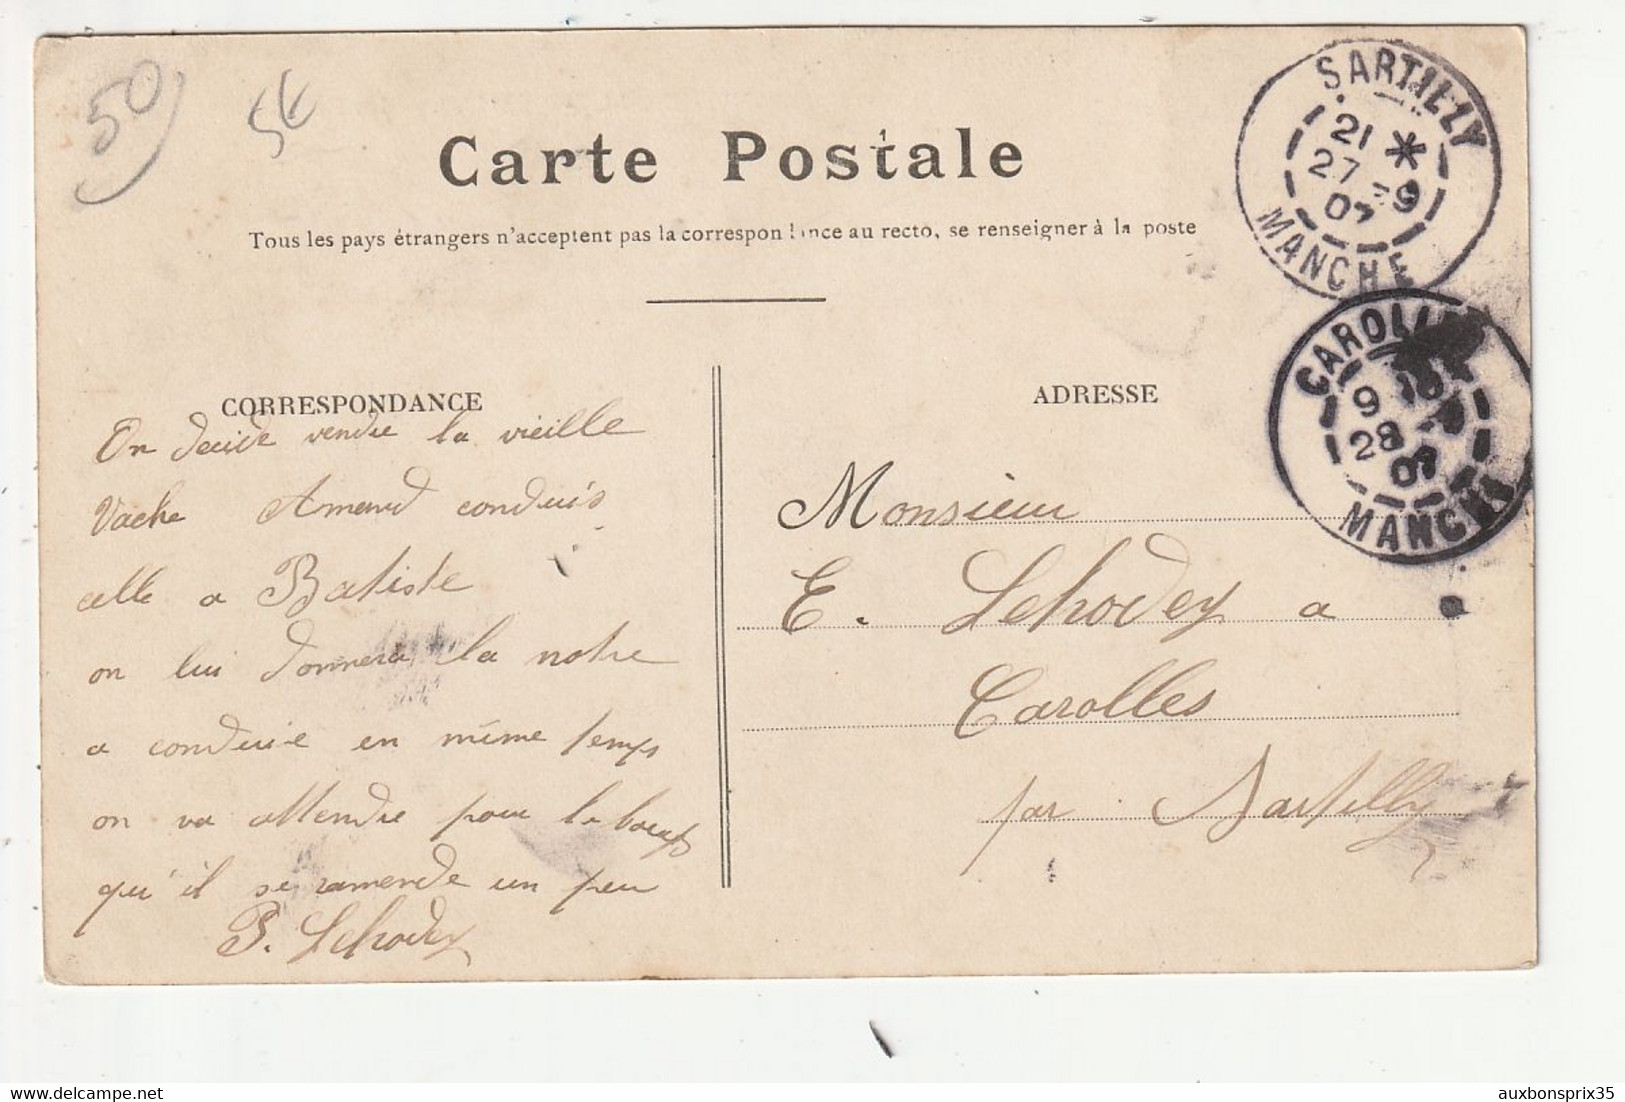 50
5€
Carte Postale
Tous les pays étrangers n'acceptent pas la correspondance au recto, se renseigner à la poste
SARTILLY
21 *
27 -9
07
MANCHE
CAROLLES
9
28 -9
07
MANCHE
CORRESPONDANCE
On decide vendre la vieille
Vache Amand conduis
celle a Batiste
on lui donnera la notre
a conduire en même temps
on va attendre pour le boeufs
qu'il se ramende un peu
P. Lehodey
ADRESSE
Monsieur
E. Lehodey a
Carolles
par Sartilly
auxbonsprix35